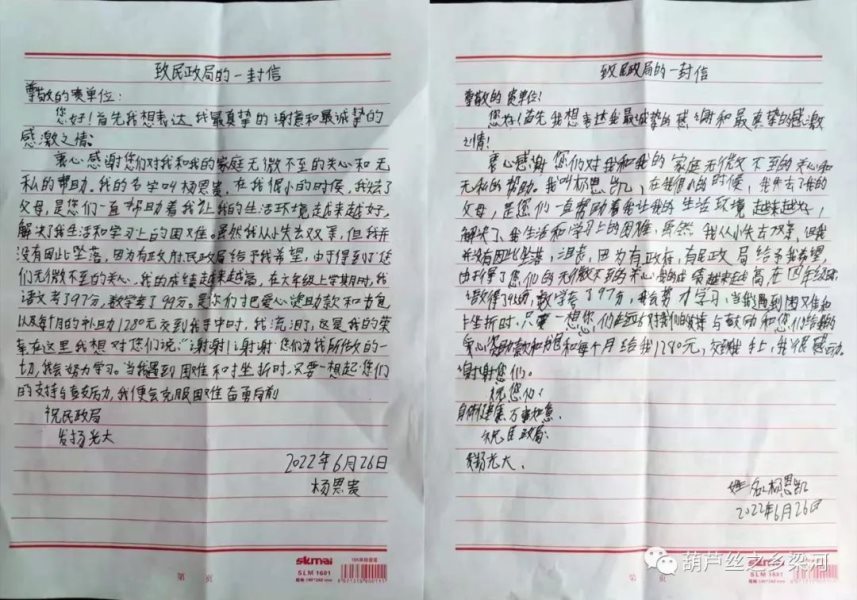 致民政局的一封信
尊敬的贵单位：
您好！首先我想表达我最真挚的谢意和最诚挚的
感激之情。
衷心感谢您们对我和我的家庭无微不至的关心和无
私的帮助。我的名字叫杨恩贵，在我很小的时候，我失去了
父母，是您们一直帮助着我让我的生活环境越来越好，
解决了我生活和学习上的困难。虽然我从小失去双亲，但我并
没有因此坠落，因为有政府，民政局给予我希望，由于得到了您
们无微不至的关心，我的成绩越来越高，在六年级上学期时，我
语文考了97分，数学考了99分。是你们把爱心赞助款和书包
以及每个月的补助1280元交到我手中时，我流泪了，这是我的荣
幸在这里我想对您们说：“谢谢！谢谢您们为我所做的一
切，我会努力学习。当我遇到困难和挫折时，只要一想起您们
的支持与鼓励，我便会克服困难奋勇向前
祝民政局
发扬光大
2022年6月26日
杨恩贵
skmai
SLM 1601
第 页
致民政局的一封信
尊敬的贵单位！
您好！首先我想表达我最诚挚的感谢和最真挚的感激
之情！
衷心感谢您们对我和我的家庭无微不至的关心和
无私的帮助。我叫杨恩凯，在我很小的时候，我失去了我的
父母，是您们一直帮助着我让我的生活环境越来越好，
解决了我生活和学习上的困难，虽然我从小失去双亲，但我
并没有因此坠落，沮丧，因为有政府，有民政局给予我希望，
由于得了您们的无微不至的关心我的成绩越来越高在四年级
数学考了97分，我会努力学习，当我遇到困难和
挫折时，只要一想您们
爱心赞助款和书包和每个月给我1280元，交到我手上，我很感动。
谢谢您们。
祝您们：
身体健康，万事如意，
祝民政局：
发扬光大。
姓名：杨恩凯
2022年6月26日
skmai
SLM 1601
第 页
葫芦丝之乡梁河